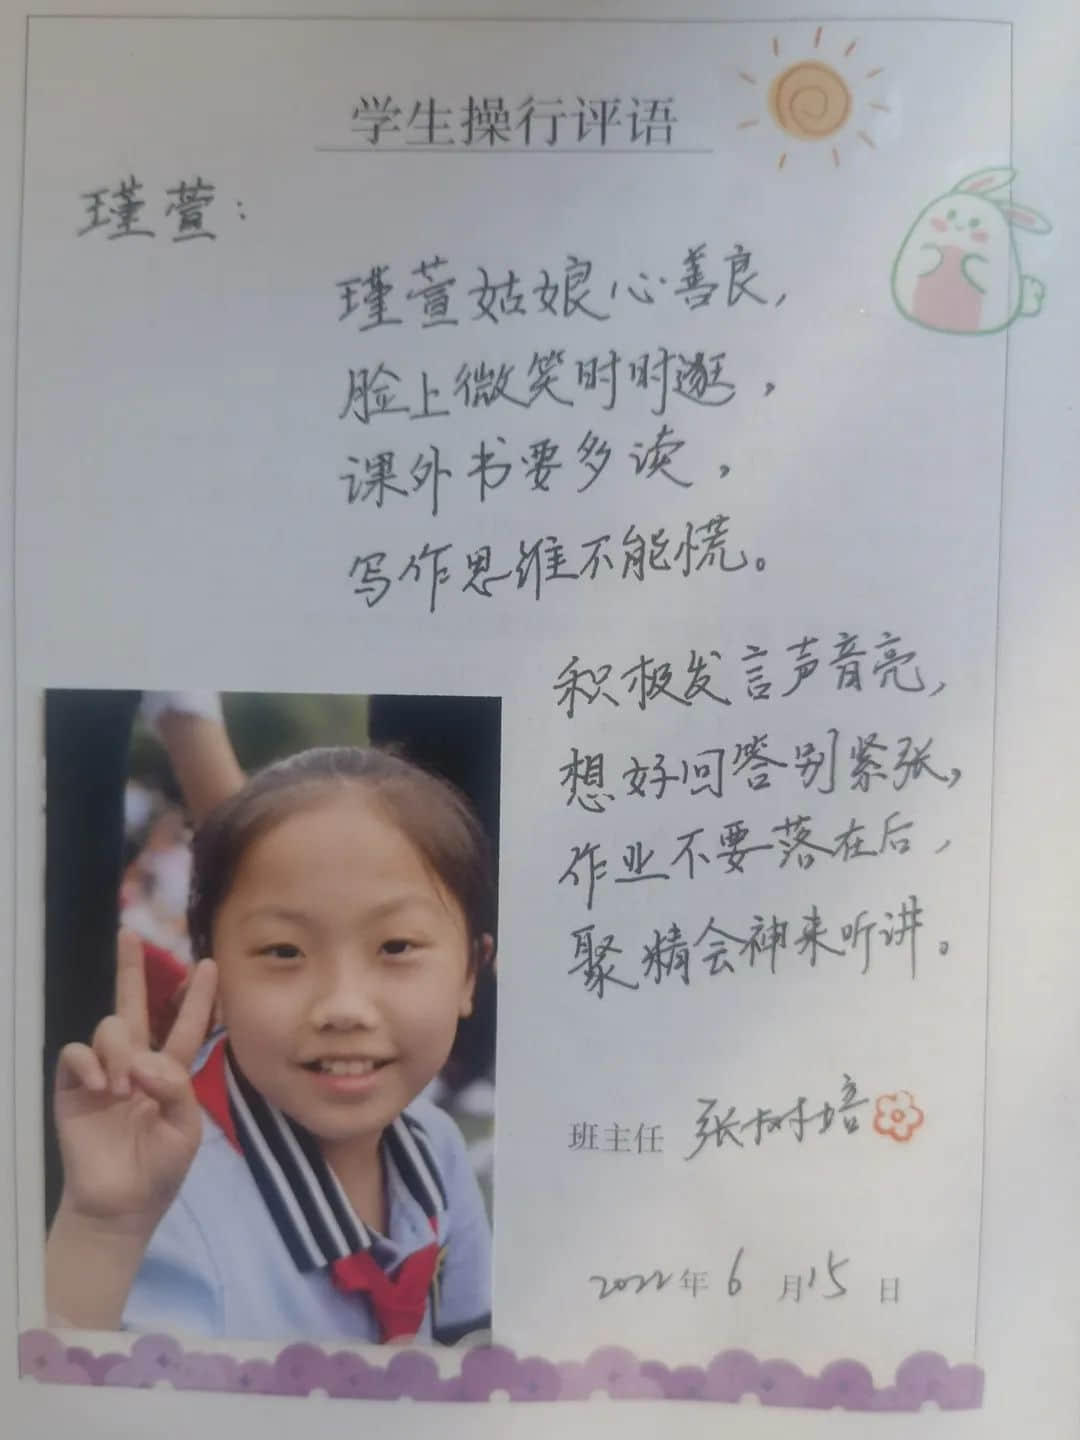 学生操行评语
瑾萱：
瑾萱姑娘心善良，
脸上微笑时时逛，
课外书要多读，
写作思维不能慌。
积极发言声音亮，
想好回答别紧张，
作业不要落在后，
聚精会神来听讲。
班主任 张树培
2022年6月15日